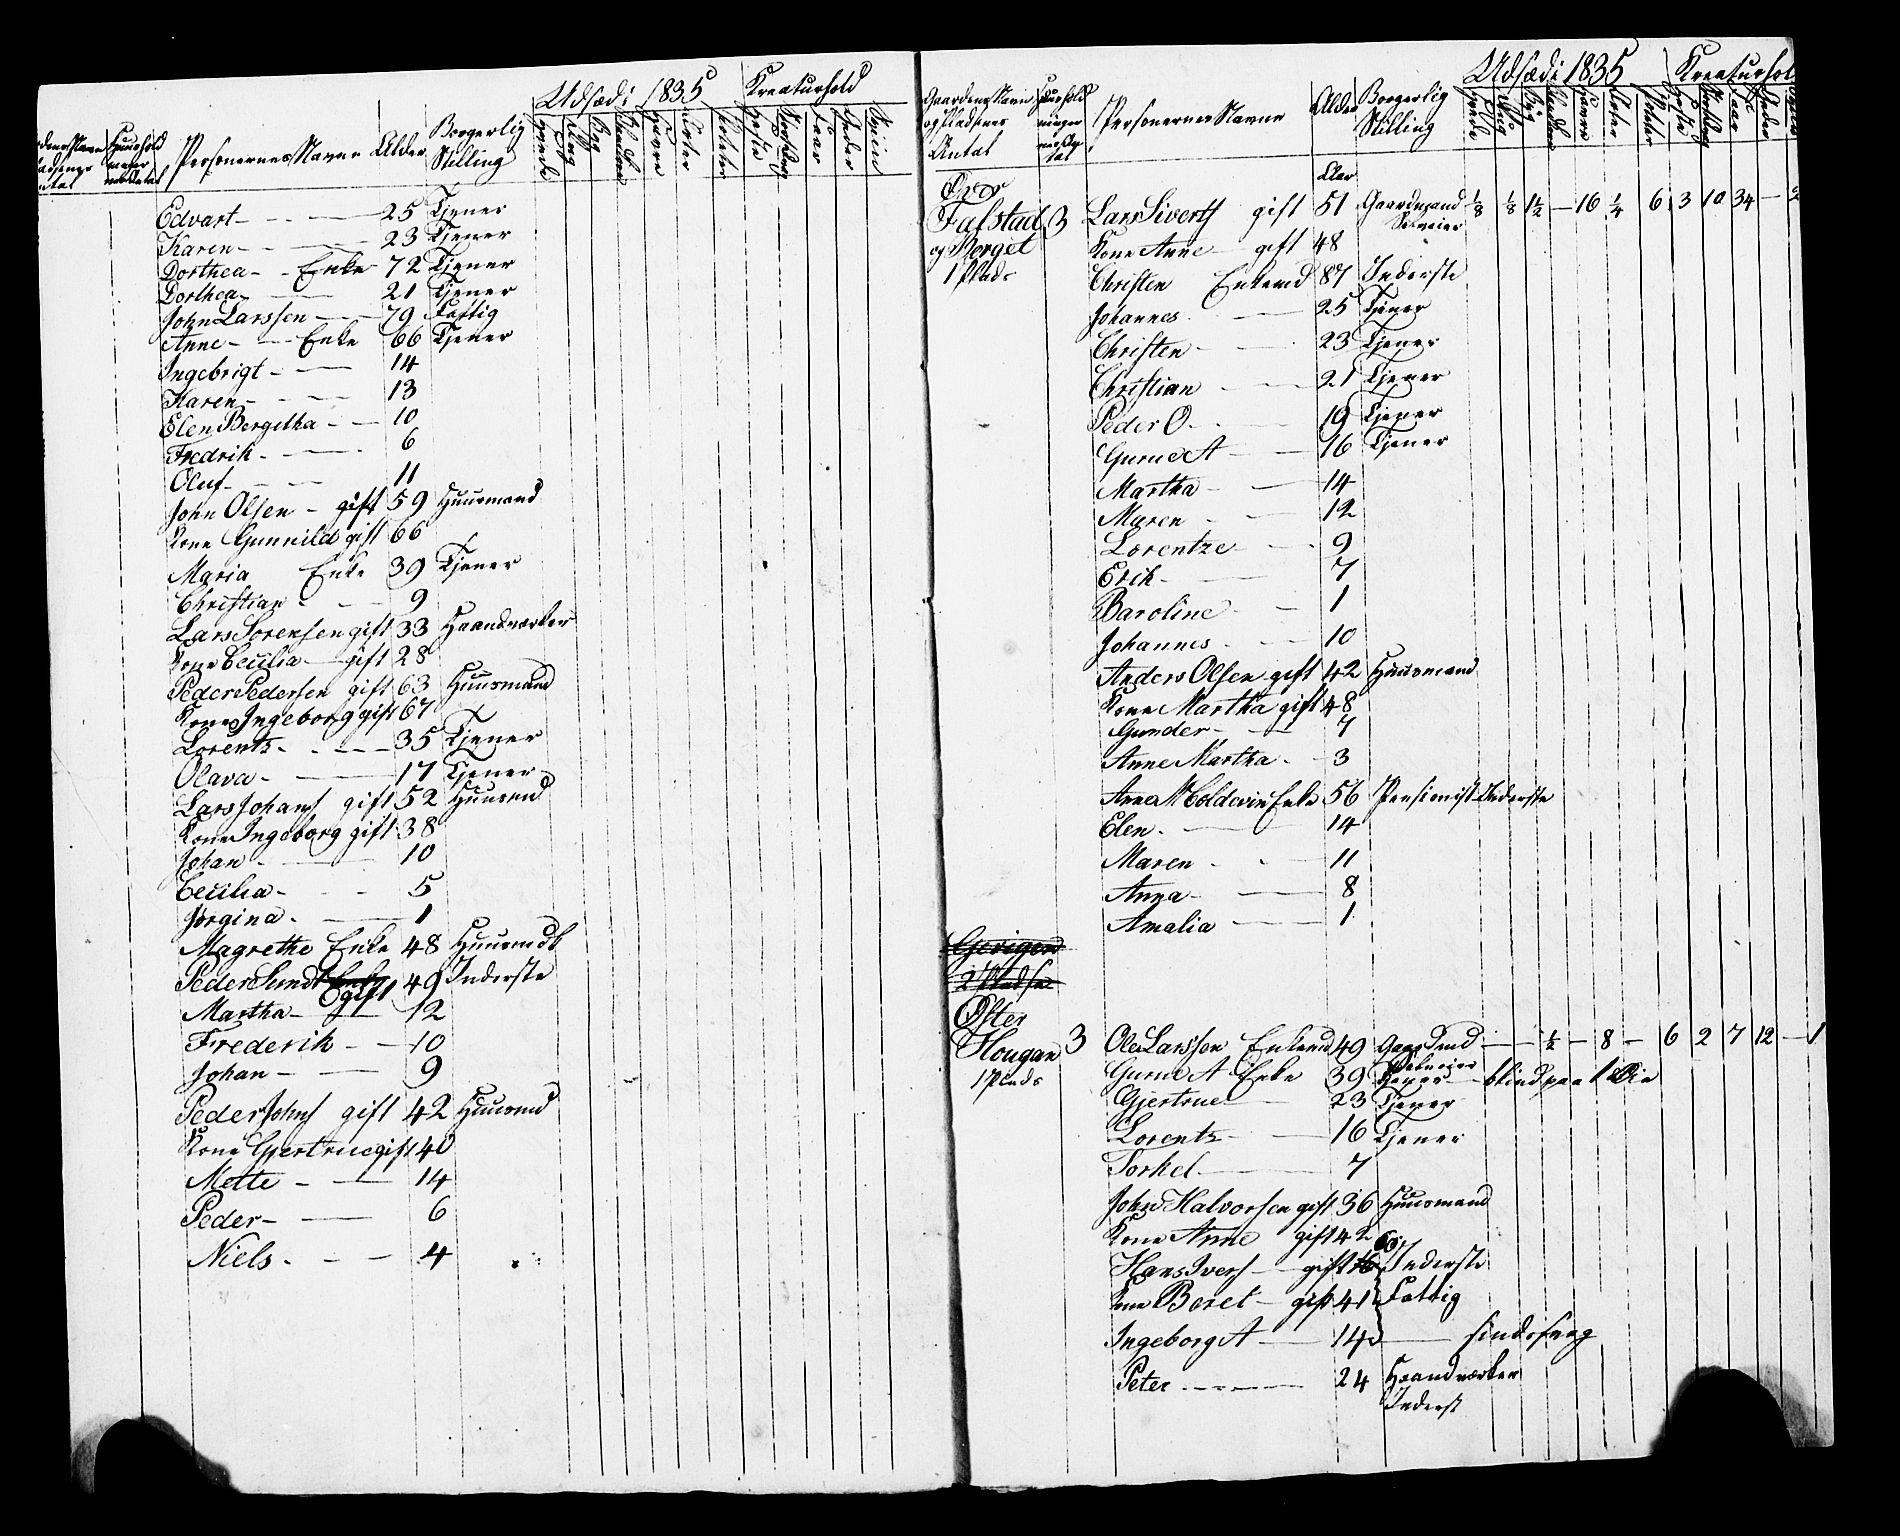 Udsæd i 1835 Kreaturhold
Personernes Navne Alder Borgerlig Stilling
Edvart 25 Tjener
Karen 23 Tjener
Dorthea Enke 72 Tjener
Dorthea 21 Tjener
John Larssen 79 Fattig
Anne Enke 66 Tjener
Ingebrigt 14
Karen 13
Elen Bergitha 10
Fredrik 6
Oluf 11
John Olsen gift 59 Huusmand
Kone Gunnild gift 66
Maria Enke 39 Tjener
Christian 9
Lars Sorensen gift 33 Haandværker
Kone Cecilia gift 28
Peder Pedersen gift 63 Huusmand
Kone Ingeborg gift 67
Lorents 35 Tjener
Olava 17 Tjener
Lars Johans gift 52 Huusmd
Kone Ingeborg gift 38
Johan 10
Cecilia 5
Jorgina 1
Magrethe Enke 48
Peder Sundt gift 49 Inderste
Martha 12
Frederik 10
Johan 9
Peder Johns gift 42 Huusmd
Kone Gjertrue gift 40
Mette 14
Peder 6
Niels 4
Udsæd i 1835
Personernes Navne Alder Borgerlig Stilling
Antal
Aar
Fafstad 3 Lars Siverts gift 51 Gaardmand 1/8 1/8 1 1/2 — 16 1/4 6 3 10 34 — 2
og Berget Kone Anne gift 48
1 Plads Christen Enkemd 87 Inderste
Johannes 25 Tjener
Christen 23 Tjener
Christian 21 Tjener
Peder O. 19 Tjener
Gurue A 16 Tjener
Martha 14
Maren 12
Lorentze 9
Erik 7
Baroline 1
Johannes 10
Anders Olsen gift 42 Huusmand
Kone Martha gift 48
Gunder 7
Anne Martha 3
Anne M Coldevin Enke 56 Pensionist Inderste
Elen 14
Maren 11
Anna 8
Amalia 1
2 Pladse
Øster
Hougan 3 Ole Larssen Enkemd 49 — — 1/2 — 8 — 6 2 7 12 — 1
1 Plads Gurue A Enke 39 blind paa 1 Øie
Gjertrue 23 Tjener
Lorents 16 Tjener
Torkel 7
John Halvorsen gift 36 Huusmand
Kone Anne gift 42
Hans Ivers gift 60 Inderste
Kone Beret gift 41 Fattig
Ingeborg A 14 sindssvag
Peter 24 Haandværker
Inderst